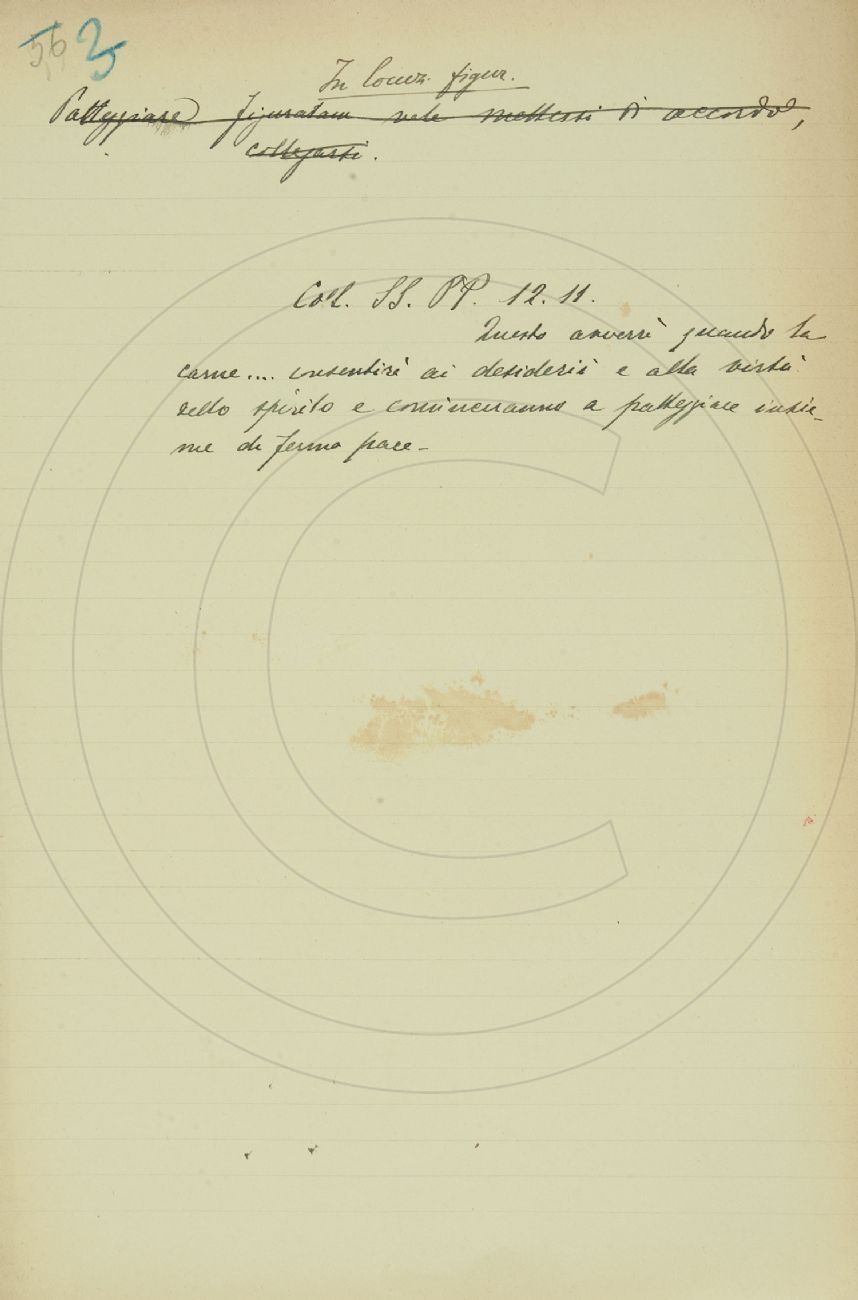 56 3
In locuz. figur.
Patteggiare figuratam vale mettersi di accordo,
collegarsi.
Coll. SS. PP. 12. 11.
Questo averrà quando la
carne.... consentirà ai desiderii e alla virtù
dello spirito e cominceranno a patteggiare insie-
me di ferma pace -